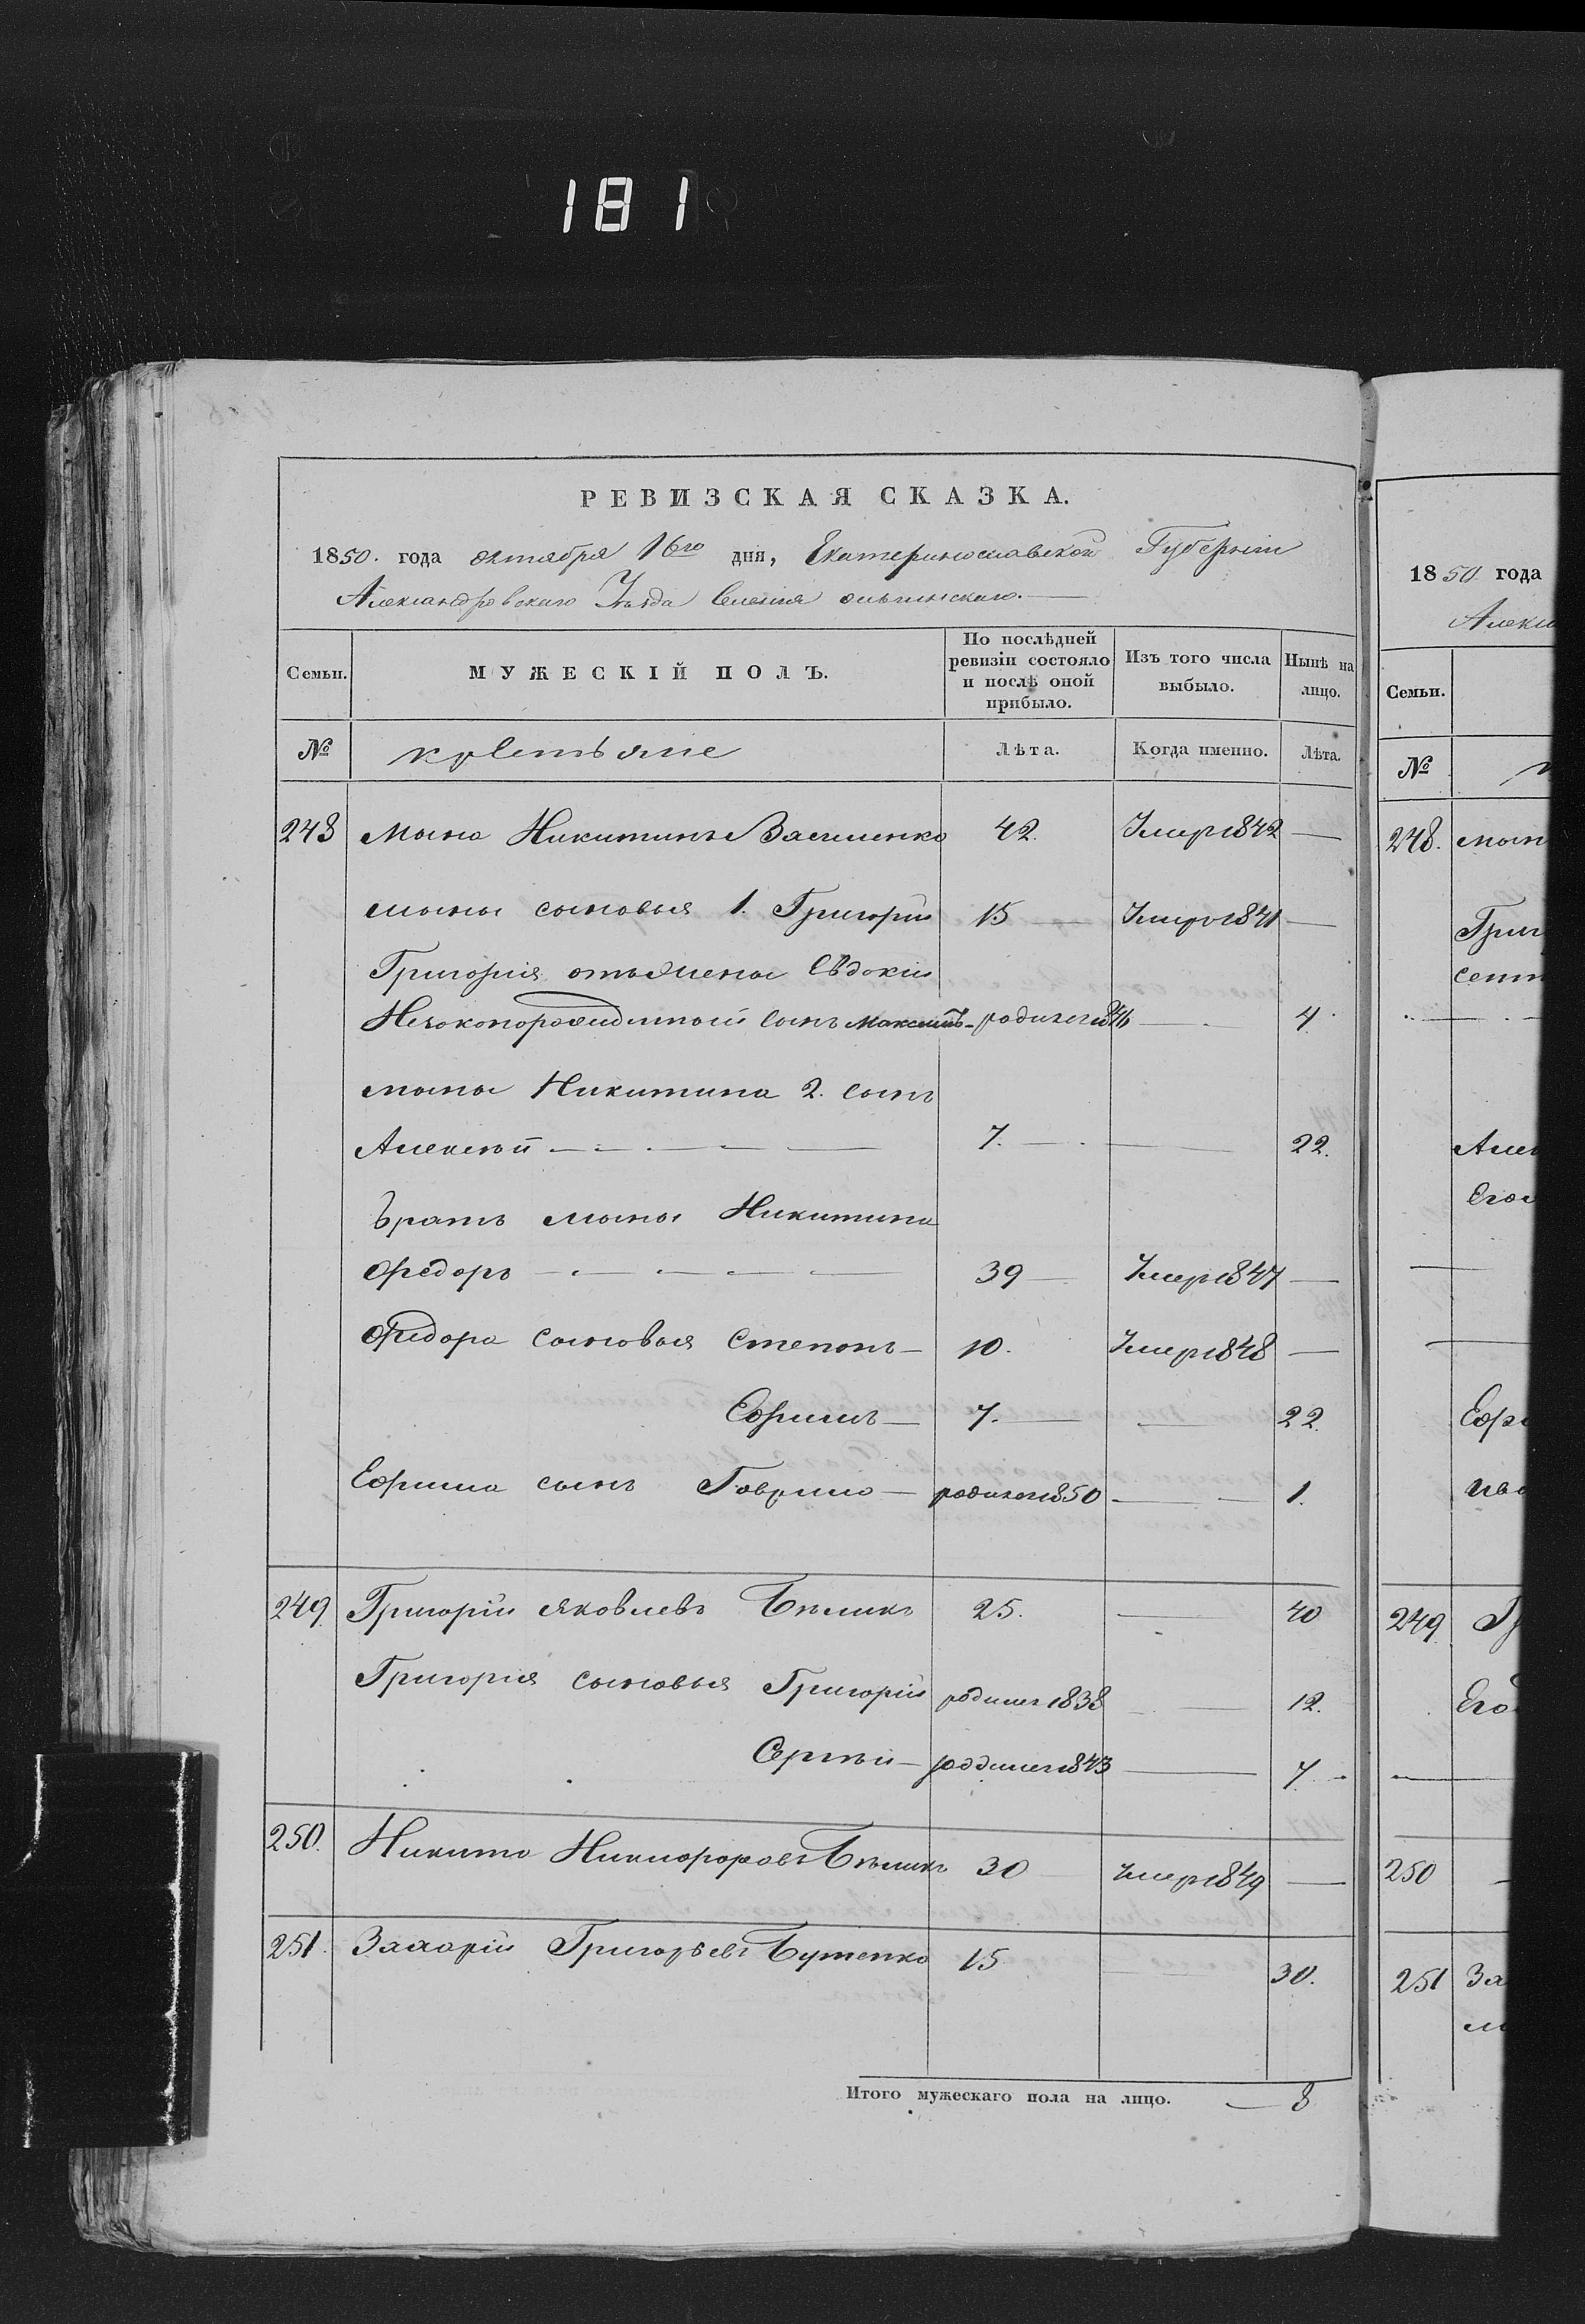 181
РЕВИЗСКАЯ СКАЗКА.
1850. года октября 16го дня, Екатеринославской Губернии
Александровского Уезда Селения ольгинского.
Семьи. МУЖЕСКІЙ ПОЛЪ. По послѣдней ревизіи состояло и послѣ оной прибыло. Изъ того числа выбыло. Нынѣ на лицо.
№ крестьяне Лѣта. Когда именно. Лѣта.
248 Мина Никитинъ Василенко 42. Умер 1842 —
мины сыновья 1. Григорій 15 — Умеръ 1841 —
Григория отъ жены Евдокіи
Незаконорожденный сынъ максимъ — родился 1846 — 4.
мины Никитина 2. сынъ
Алексѣй — 7. — 22.
Братъ мины Никитина
Федоръ — 39 — Умер 1847 —
Федора сыновья Степанъ — 10. Умер 1848 —
Ефимъ — 7. — 22.
Ефима сынъ Гаврило — родился 1850 — 1.
249. Григорій яковлевъ Бѣликъ 25. — 40
Григорія сыновья Григорій родился 1838 — 12.
Сергѣй — родился 1843 — 7.
250. Никита Никифоровъ Бѣликъ 30 — умер 1849 —
251. Захарій Григорьевъ Бутенко 15 — 30.
Итого мужескаго пола на лицо. — 8
1850 года
Алекса
Семьи.
№
248. мин
Григ
Алек
Его
Ефи
ива
249. Гр
Его
250 —
251 За